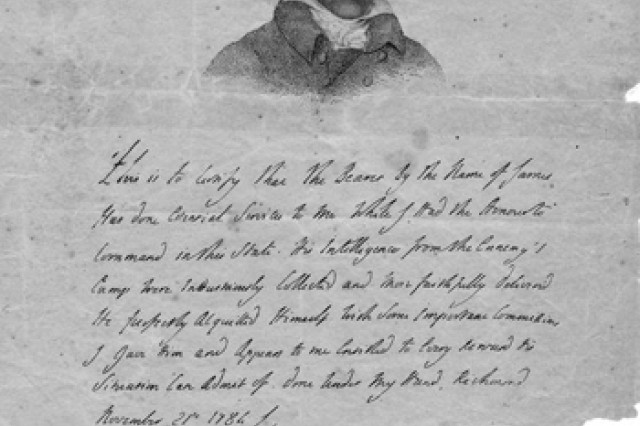 This is to Certify that the Bearer By the Name of James
Has done Essential Services to me While I Had the Honour to
Command in this State. His Intelligences from the Enemy's
Camp were Industriously Collected and More faithfully deliver'd
He perfectly Acquitted Himself with Some Important Commissions
I Gave Him and Appears to me Entitled to Every Reward his
Situation Can Admit of. Done Under My Hand, Richmond
November 21st 1784